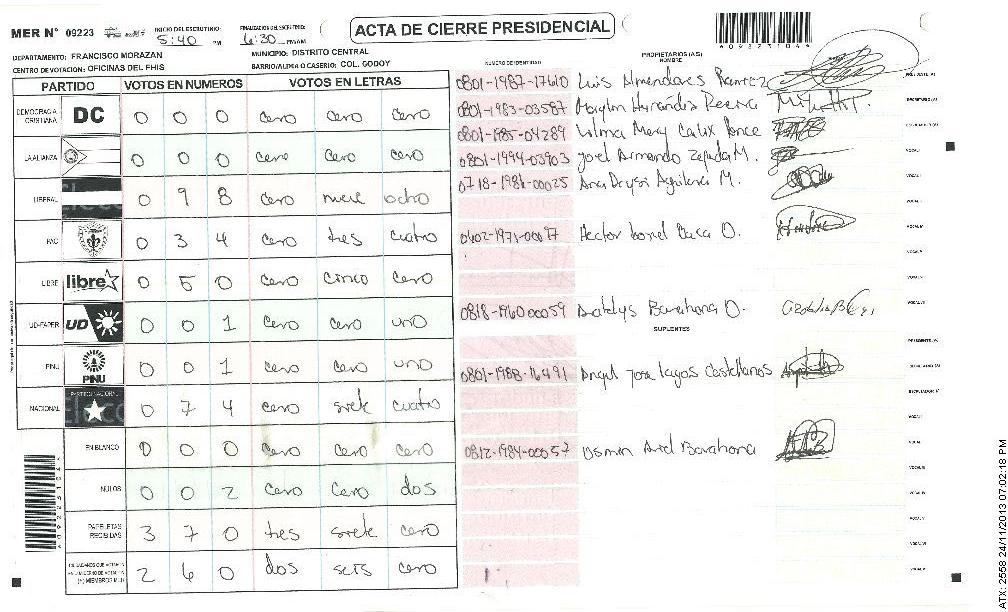 MER N° 09223
INICIO DEL ESCRUTINIO: 5:40 PM
FINALIZACION DEL ESCRUTINIO: 6:30 PM/AM
ACTA DE CIERRE PRESIDENCIAL
DEPARTAMENTO: FRANCISCO MORAZAN
MUNICIPIO: DISTRITO CENTRAL
CENTRO DE VOTACION: OFICINAS DEL FHIS
BARRIO/ALDEA O CASERIO: COL. GODOY
PARTIDO VOTOS EN NUMEROS VOTOS EN LETRAS
DEMOCRACIA CRISTIANA DC 0 0 0 cero cero cero
LA ALIANZA 0 0 0 cero cero cero
LIBERAL 0 9 8 cero nueve ocho
PAC 0 3 4 cero tres cuatro
LIBRE libre 0 5 0 cero cinco cero
UD-FAPER UD 0 0 1 cero cero uno
PINU PINU 0 0 1 cero cero uno
NACIONAL 0 7 4 cero siete cuatro
EN BLANCO 0 0 0 cero cero cero
NULOS 0 0 2 cero cero dos
PAPELETAS RECIBIDAS 3 7 0 tres siete cero
2 6 0 dos seis cero
NUMERO DE IDENTIDAD
PROPIETARIOS (AS)
NOMBRE
0801-1987-17610 Luis Almendares Ramirez
0801-1983-03587
0801-1985-04289 Wilma Mery Calix Ponce
0801-1994-03903 Joel Armando Zepeda M.
0718-1986-00025 Aguilera M.
Hector Baca O.
0818-1960-00059 Barahona O.
SUPLENTES
0801-1988-16491 Angel Jose Lagos Castellanos
0812-1984-00057 Osmin Ariel Barahona
ATX: 2558 24/11/2013 07:02:18 PM